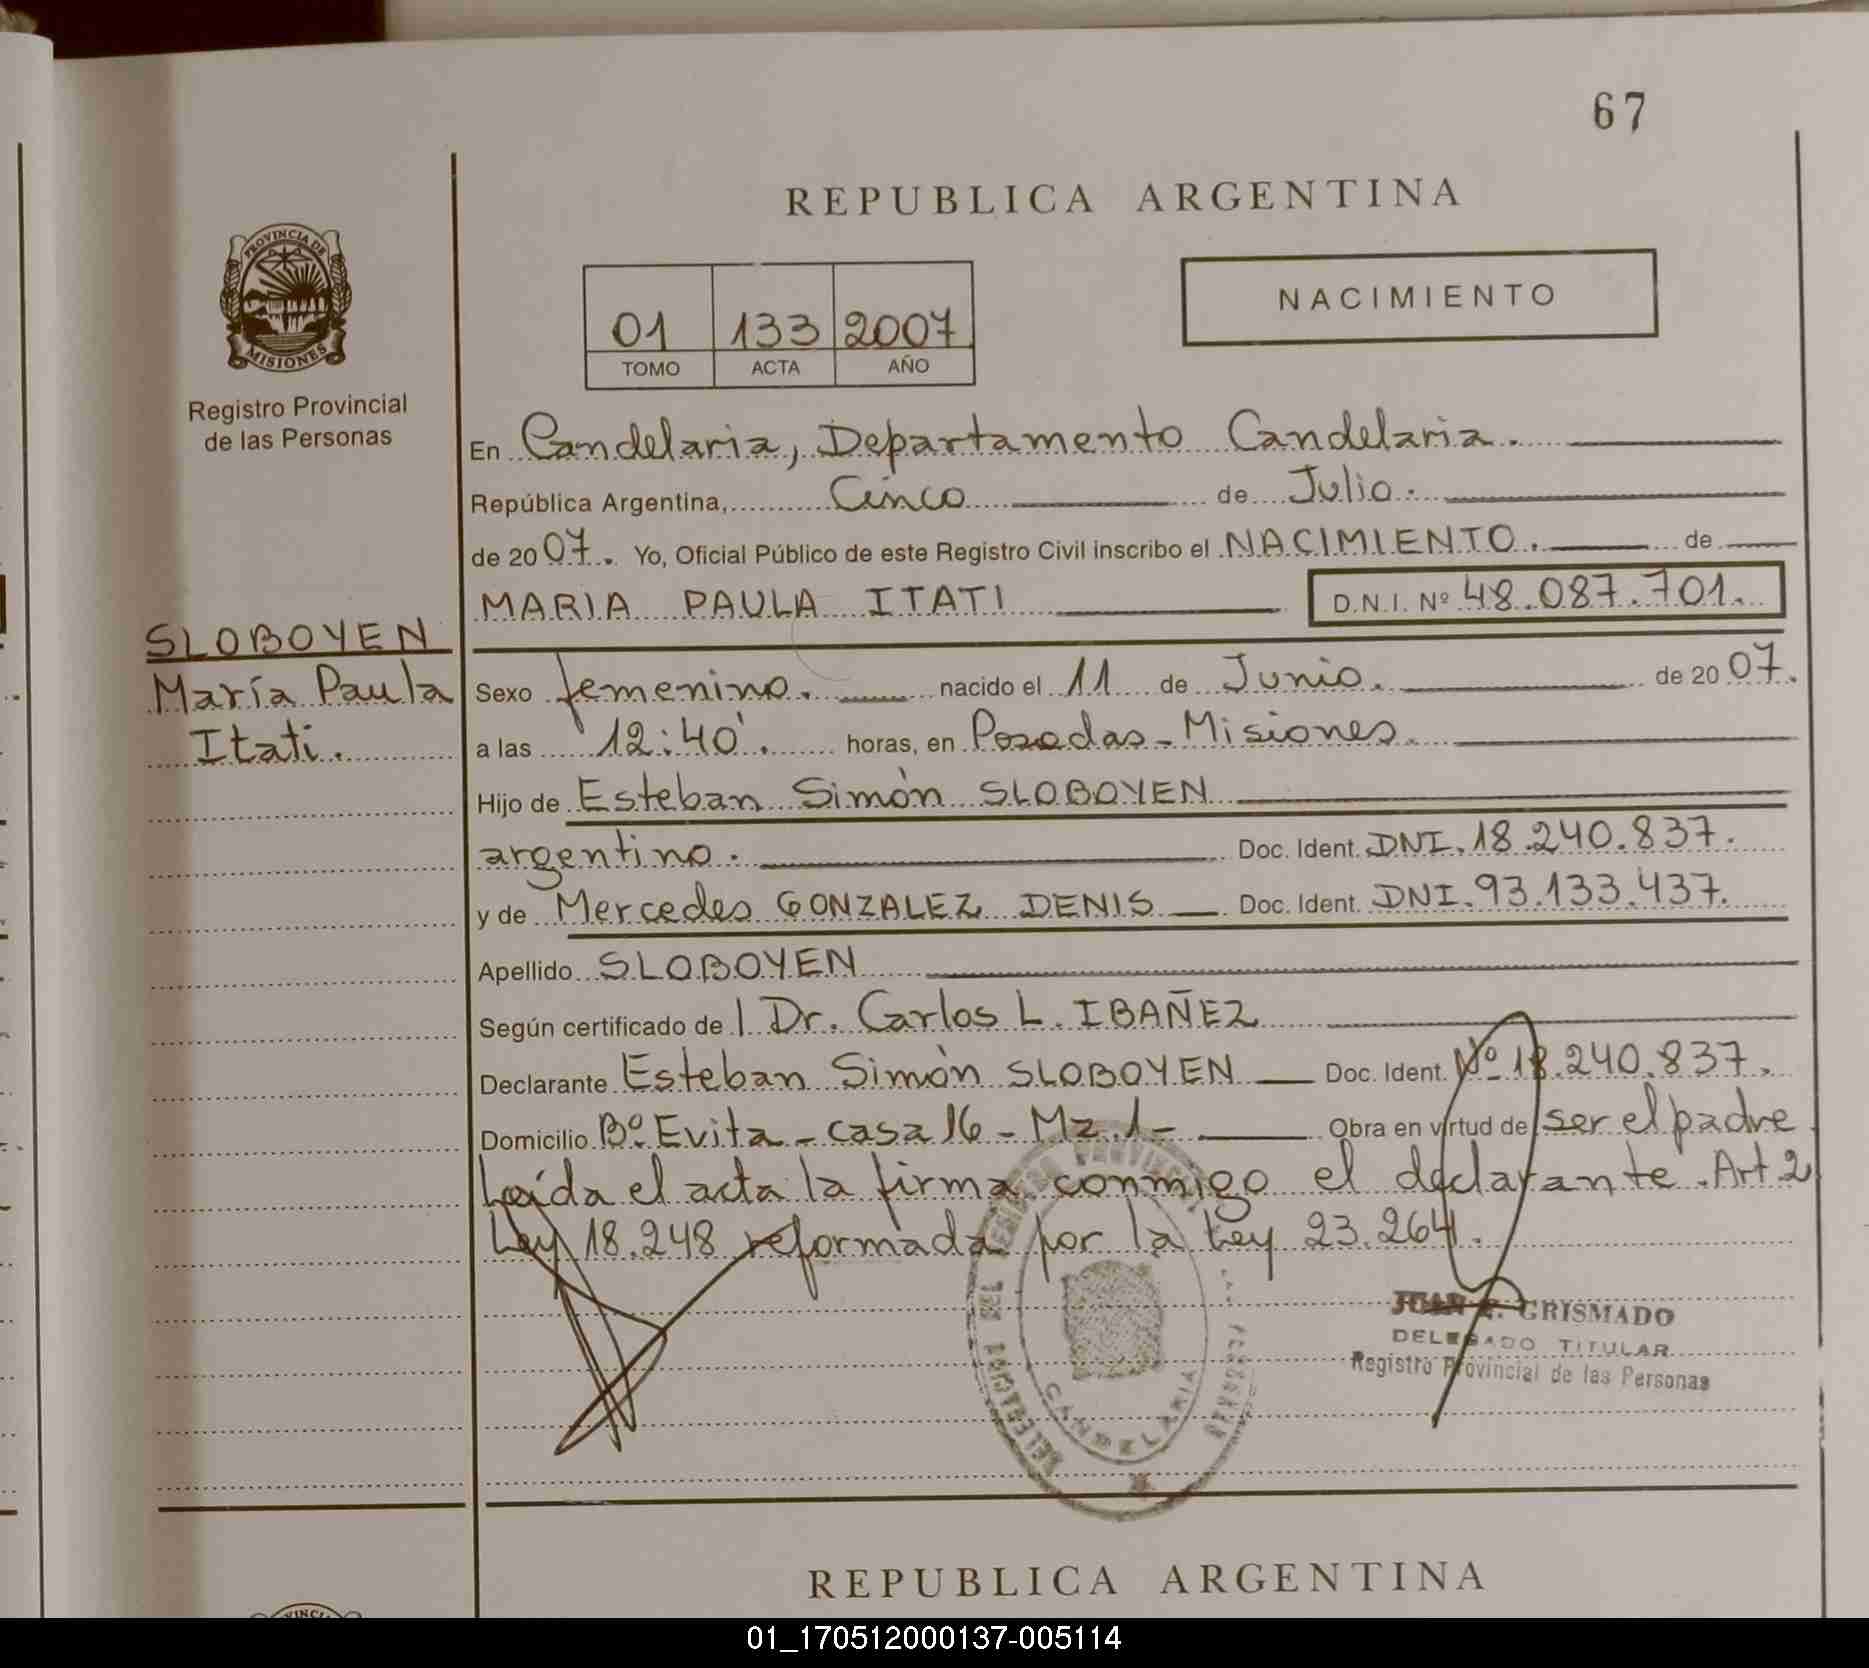 67
REPUBLICA ARGENTINA
PROVINCIA DE
MISIONES
Registro Provincial
de las Personas
01 133 2007
TOMO ACTA AÑO
NACIMIENTO
En Candelaria, Departamento Candelaria.
República Argentina, Cinco de Julio.
de 2007. Yo, Oficial Público de este Registro Civil inscribo el NACIMIENTO. de
MARIA PAULA ITATI D.N.I. Nº 48.087.701.
SLOBOYEN
María Paula
Itati.
Sexo femenino. nacido el 11 de Junio. de 2007.
a las 12:40'. horas, en Posadas - Misiones.
Hijo de Esteban Simón SLOBOYEN
argentino. Doc. Ident. DNI. 18.240.837.
y de Mercedes GONZALEZ DENIS Doc. Ident. DNI. 93.133.437.
Apellido SLOBOYEN
Según certificado de l Dr. Carlos L. IBAÑEZ
Declarante Esteban Simón SLOBOYEN Doc. Ident. Nº 18.240.837.
Domicilio Bº Evita - casa 16 - Mz. 1 - Obra en virtud de ser el padre
Leída el acta la firma conmigo el declarante. Art 2
Ley 18.248 reformada por la Ley 23.264.
CANDELARIA
JUAN GRISMADO
DELEGADO TITULAR
Registro Provincial de las Personas
REPUBLICA ARGENTINA
01_170512000137-005114